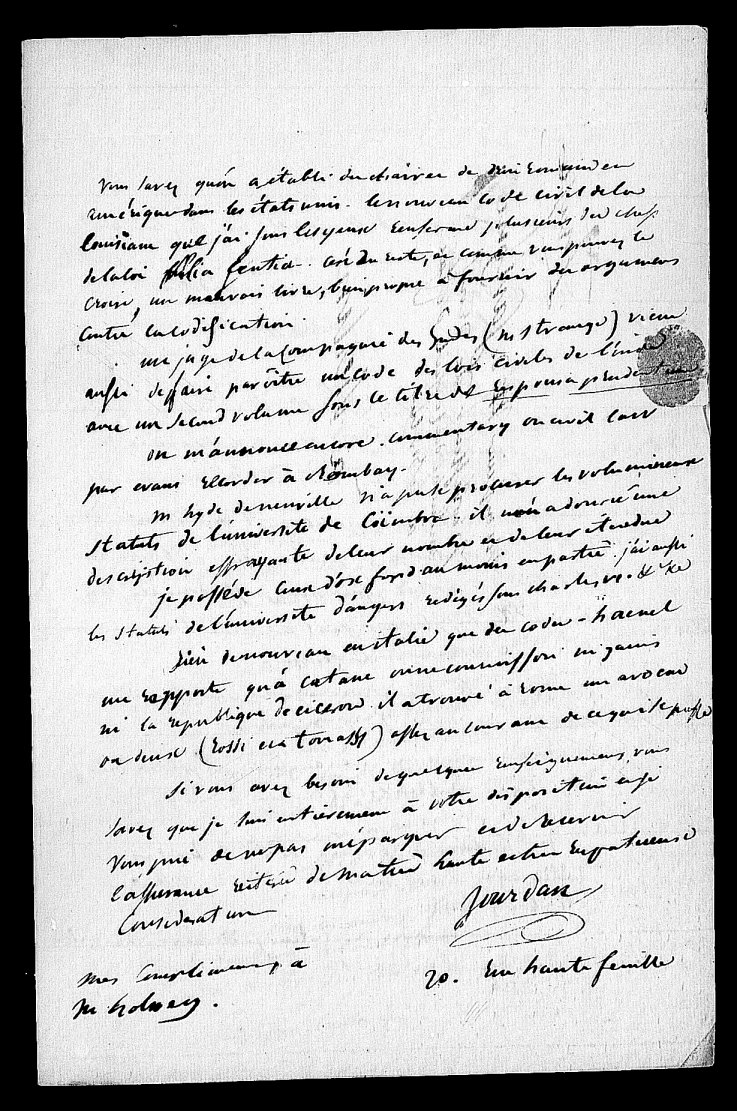 Vous savez qu'on a établi des chaires de droit romain en
amérique dans les états unis. le nouveau code civil de la
louisiane que j'ai sous les yeux renferme plusieurs des chefs
de la loi fusia. c'est du reste, comme vous pouvez le
croire, un mauvais livre, bien propre à fournir des argumens
contre la codification.
un juge de la Compagnie des Indes (m strange) vient
aussi de faire paroître un code des lois civiles de l'inde
avec un second volume sous le titre de responsa prudentum
on m'annonce encore. commentary on civil law
par evans recorder à Bombay.
M hyde de neuville n'a pu se procurer les volumineux
statuts de l'université de Coïmbre. il m'en a donné une
description effrayante de leur nombre et de leur étendue
je possède ceux d'oxford au moins en partie. j'ai aussi
les statuts de l'université d'angers rédigés sous charles
Rien de nouveau en italie que du code - haenel
me rapporte qu'à Catane on ne connoissoit ni gaius
ni la république de ciceron. il a trouvé à rome un avocat
ou deux (Rossi et ) assez au courant de ce qui se passe
Si vous avez besoin de quelques renseignemens, vous
savez que je suis entièrement à votre disposition et je
vous prie de ne pas m'épargner et de recevoir
l'assurance réitérée de ma très haute et très respectueuse
Considération
Jourdan
mes Complimens à
M
20. rue hautefeuille